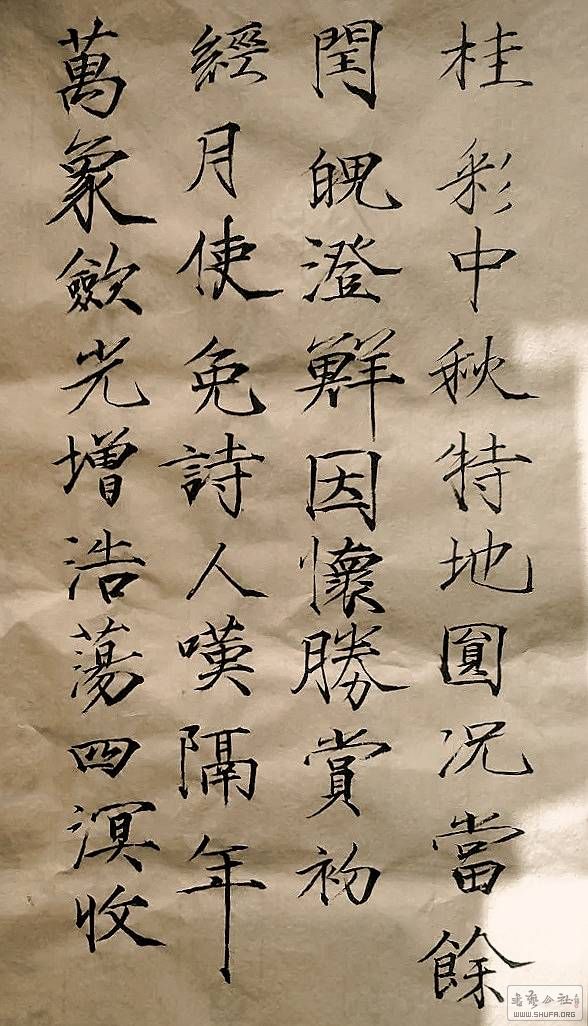 桂彩中秋特地圓况當餘
閏魄澄鮮因懷勝賞初
經月使免詩人嘆隔年
萬象斂光增浩蕩四溟收
書藝公社
WWW.SHUFA.ORG